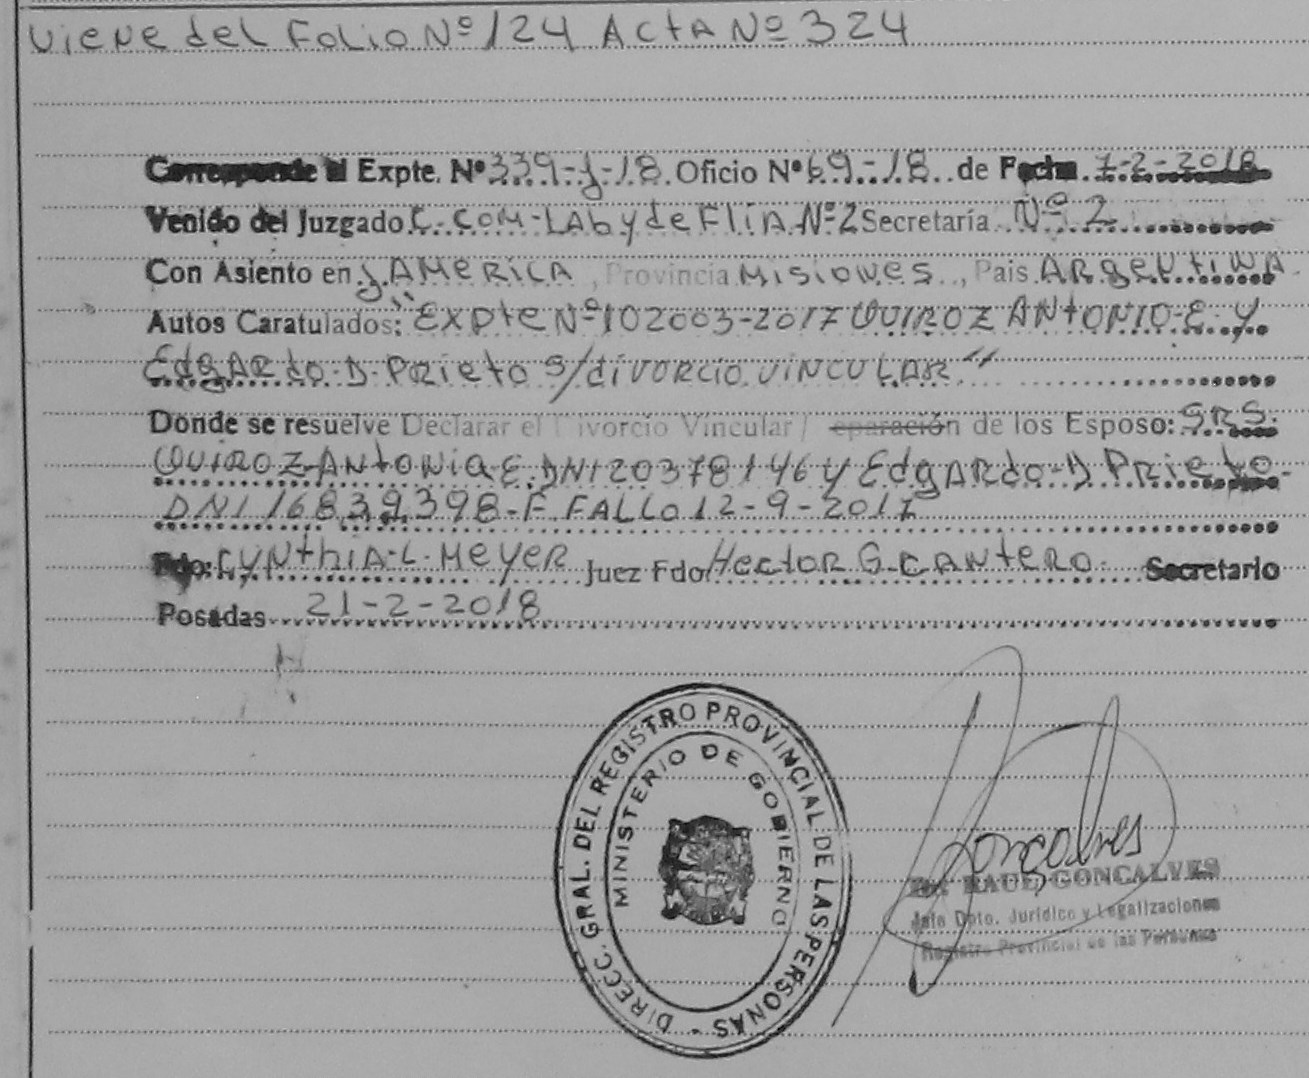 viene del Folio Nº 124 ACtA Nº 324
Corresponde al Expte. Nº 339-J-18. Oficio Nº 69-18 de Fecha 7-2-2018
Venido del Juzgado C. COM-LAb y de FliA. Nº 2 Secretaría Nº 2
Con Asiento en J. AMERICA, Provincia Misiones, Pais ARgentiNA.
Autos Caratulados: "Expte Nº 102003-2017 QUIROZ ANtONIO E. y
EdgARdo D PRieto S/divorcio viNCULAR"
Donde se resuelve Declarar el Divorcio Vincular/ eparación de los Esposo: SRS.
QUIROZ ANtoNia E. DNI 20378146 y EdgARdo D PRieto-
DNI 16839398-F. FALLO 12-9-2017
Fdo: CyNthiA L. Meyer Juez Fdo HectoR G. CANteRO Secretario
Posadas 21-2-2018
DIRECC. GRAL. DEL REGISTRO PROVINCIAL DE LAS PERSONAS -
MINISTERIO DE GOBIERNO
Goncalves
Dr. RAUL GONCALVES
Jefe Dpto. Jurídico y Legalizaciones
Registro Provincial de las Personas